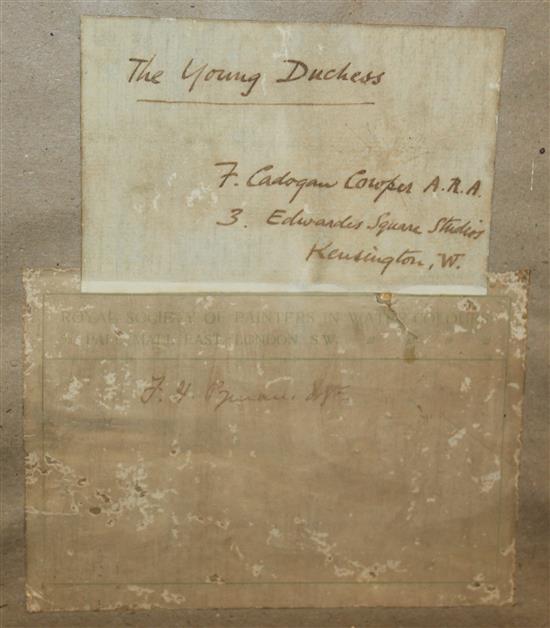 The Young Duchess
F. Cadogan Cowper A.R.A.
3. Edwardes Square Studios
Kensington, W.
ROYAL SOCIETY OF PAINTERS IN WATER COLOURS
PALL MALL EAST, LONDON S.W.
F. H.